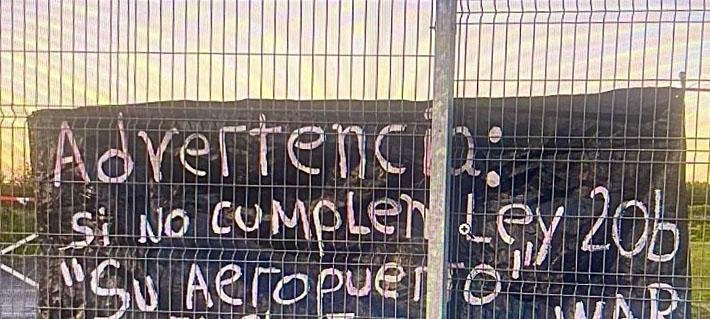 Advertencia:
Si No cumplen Ley 20b
"Su Aeropuerto"